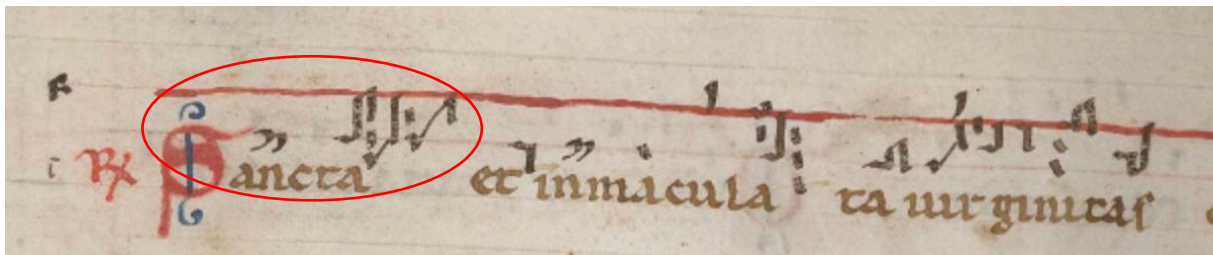 F
c R Sancta et inmacula ta uirginitas